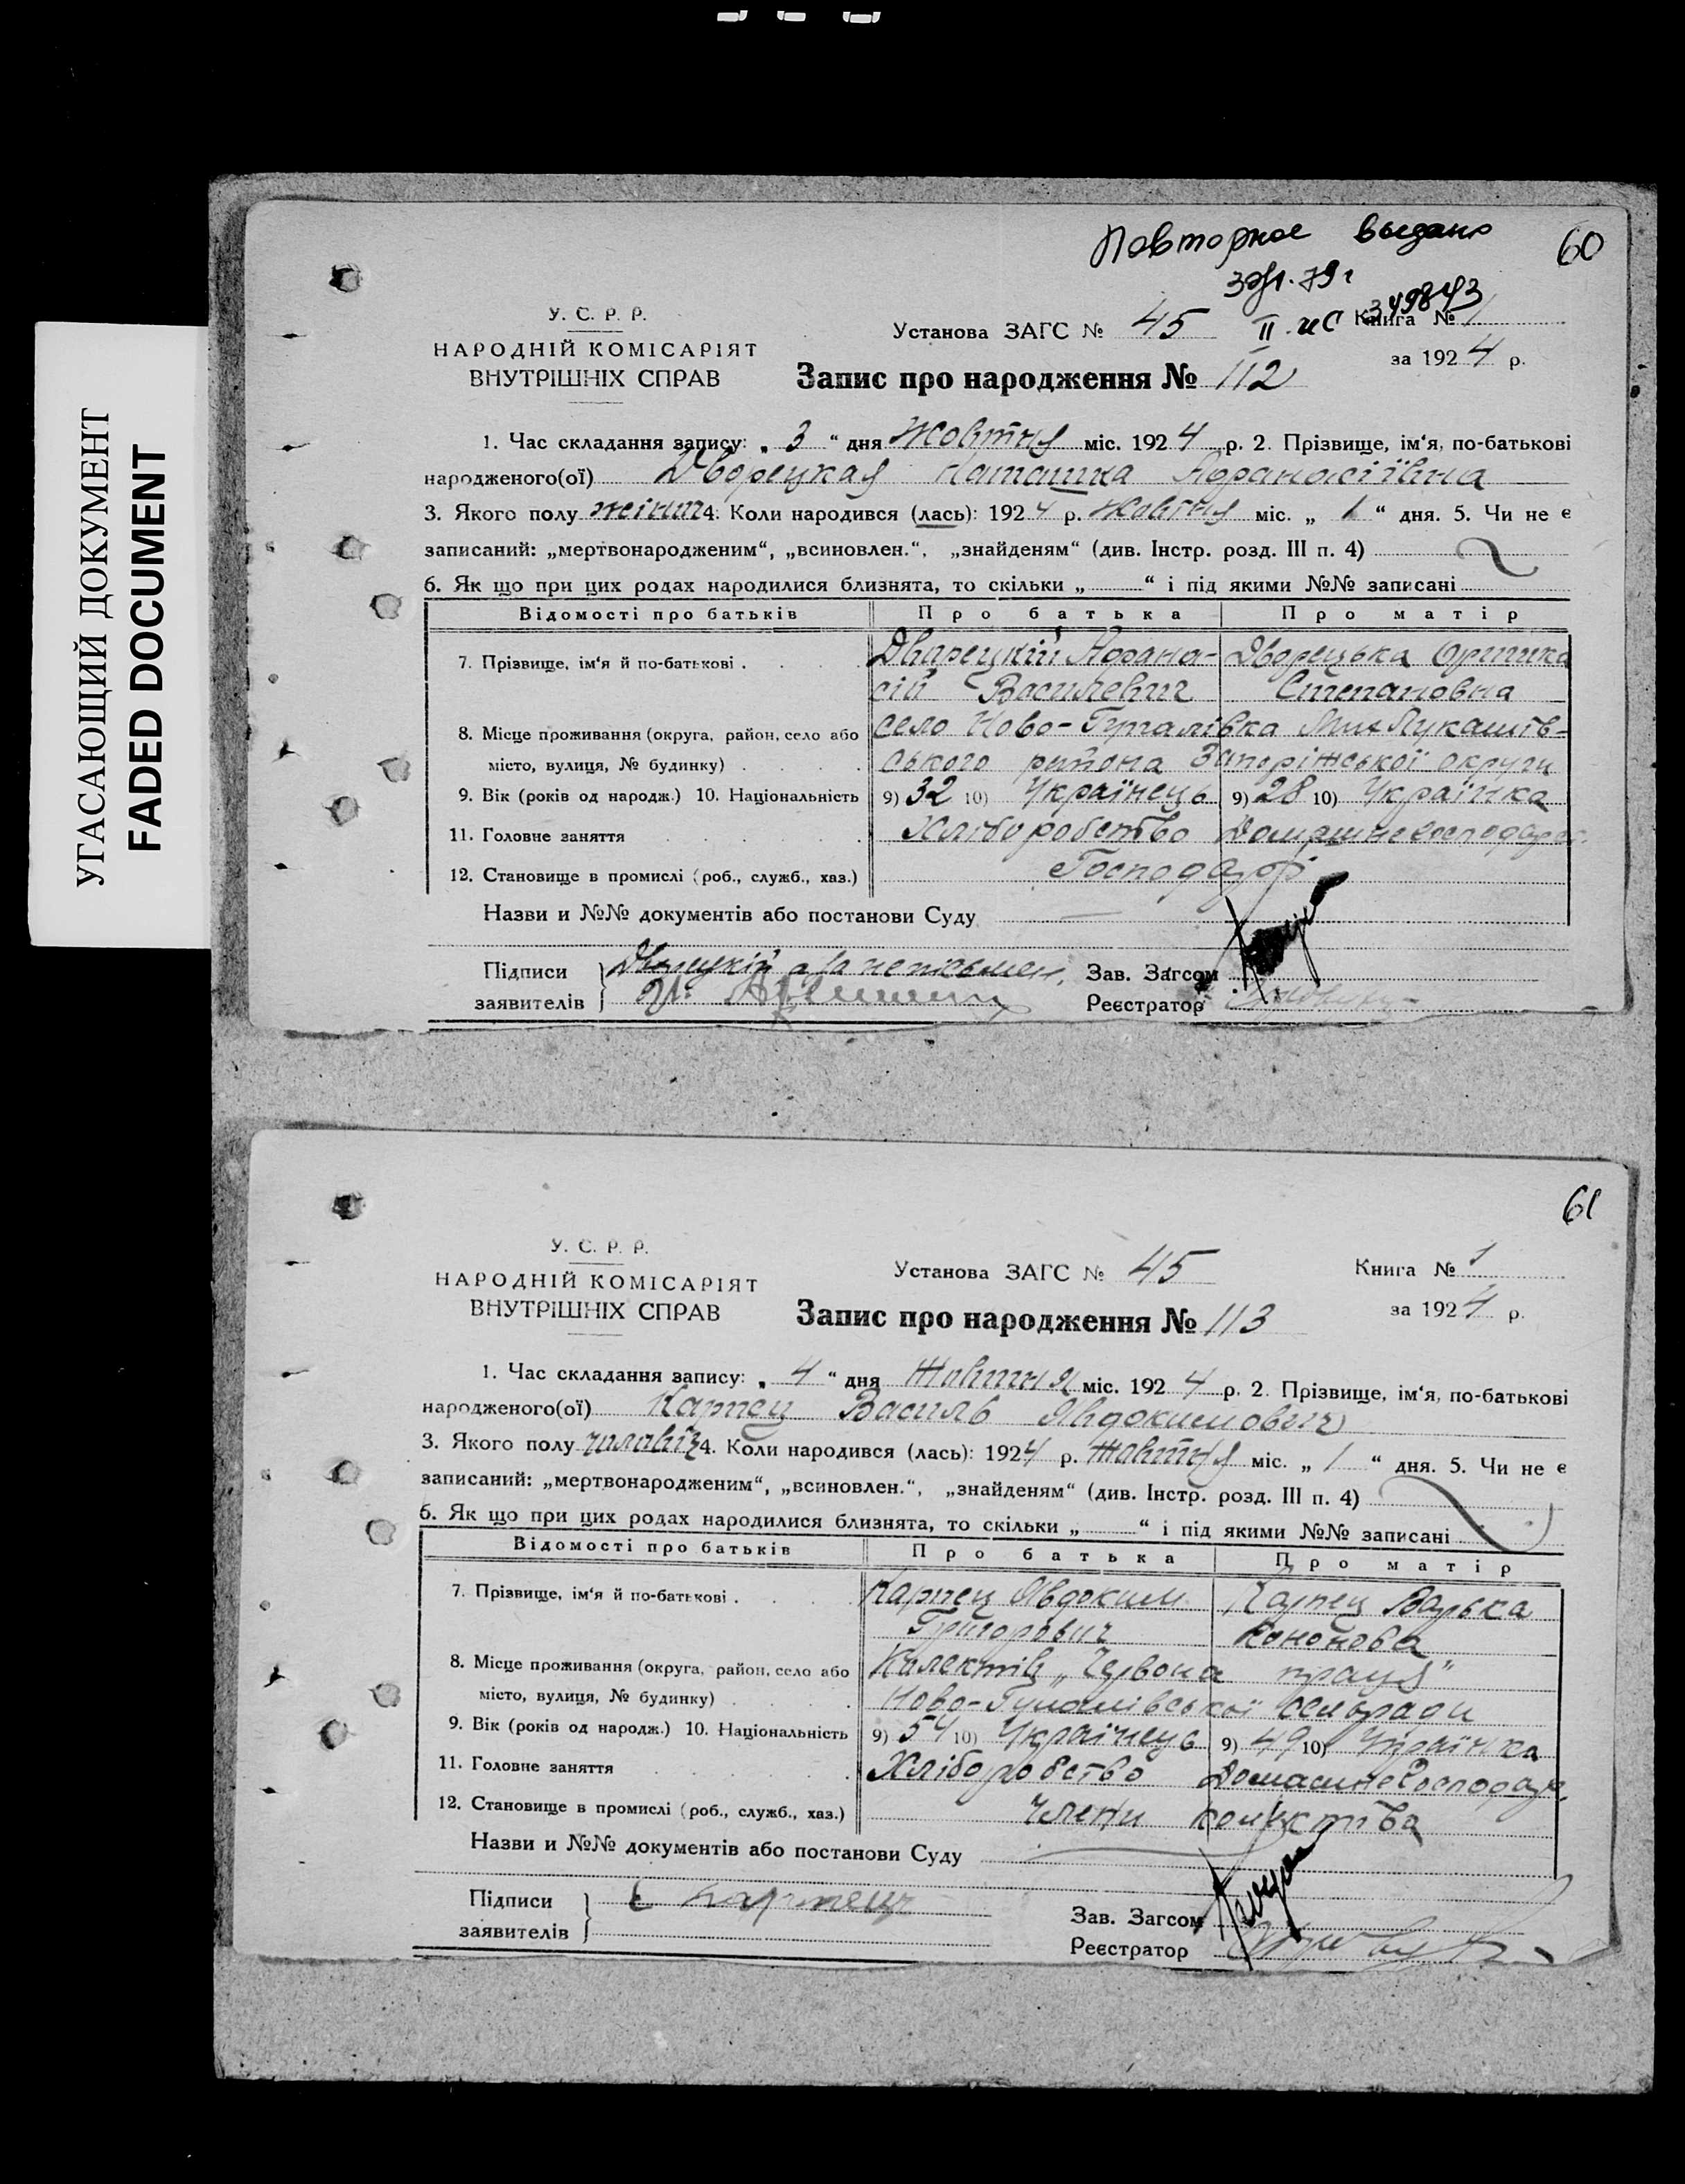 УГАСАЮЩИЙ ДОКУМЕНТ
FADED DOCUMENT
Повторное выдано 60
79 г
II ИС 349843
У. С. Р. Р.
НАРОДНІЙ КОМІСАРІЯТ
ВНУТРІШНІХ СПРАВ
Установа ЗАГС № 45 Книга № 1
за 1924 р.
Запис про народження № 112
1. Час складання запису: „ 3 “ дня Жовтня міс. 1924 р. 2. Прізвище, ім‘я, по-батькові
народженого(ої) Дворецкая Наташка Афанасіївна
3. Якого полу жіноч 4. Коли народився (лась): 1924 р. Жовтня міс. „ 1 “ дня. 5. Чи не є
записаний: „мертвонародженим“, „всиновлен.“, „знайденям“ (див. Інстр. розд. III п. 4)
6. Як що при цих родах народилися близнята, то скільки „ “ і під якими №№ записані
Відомості про батьків Про батька Про матір
7. Прізвище, ім‘я й по-батькові . Дварецкій Афана- Дворецька Оришка
сій Василевич Степановна
8. Місце проживання (округа, район, село або село Ново-Гупалівка Лукашів-
місто, вулиця, № будинку) ського района Запоріжської округи
9. Вік (років од народж.) 10. Національність 9) 32 10) Українець 9) 28 10) Українка
11. Головне заняття Хліборобство Домашнє господар
12. Становище в промислі (роб., служб., хаз.) Господарі
Назви и №№ документів або постанови Суду
Підписи Дворецкій а за неписьмен. Зав. Загсом
заявителів Реєстратор
61
У. С. Р. Р.
НАРОДНІЙ КОМІСАРІЯТ
ВНУТРІШНІХ СПРАВ
Установа ЗАГС № 45 Книга № 1
за 1924 р.
Запис про народження № 113
1. Час складання запису: „ 4 “ дня Жовтня міс. 1924 р. 2. Прізвище, ім‘я, по-батькові
народженого(ої) Карпец Василь Явдокимович
3. Якого полу чоловіч 4. Коли народився (лась): 1924 р. Жовтня міс. „ 1 “ дня. 5. Чи не є
записаний: „мертвонародженим“, „всиновлен.“, „знайденям“ (див. Інстр. розд. III п. 4)
6. Як що при цих родах народилися близнята, то скільки „ “ і під якими №№ записані
Відомості про батьків Про батька Про матір
7. Прізвище, ім‘я й по-батькові . Карпец Явдоким Карпец Варька
Григорович Кононова
8. Місце проживання (округа, район, село або Колектів „Червона праця“
місто, вулиця, № будинку) Ново-Гупалівської сельради
9. Вік (років од народж.) 10. Національність 9) 54 10) Українець 9) 49 10) Українка
11. Головне заняття Хліборобство Домашнє господар
12. Становище в промислі (роб., служб., хаз.) члени колектва
Назви и №№ документів або постанови Суду
Підписи Карпец Зав. Загсом
заявителів Реєстратор